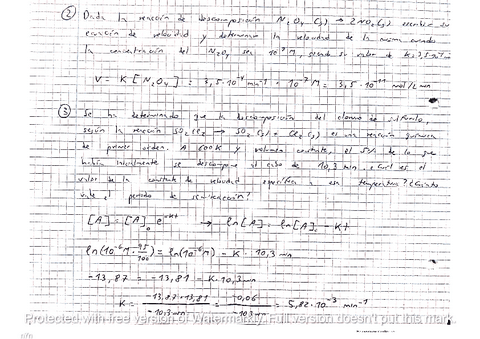 ② Dada la reacción de descomposición N₂O₄ (g) → 2NO₂(g) escribir su
ecuación de velocidad y determinar la velocidad de la misma cuando
la concentración del N₂O₄ sea 10⁻⁷ M, siendo su valor de k
V = K [N₂O₄] = 3,5·10⁻⁴ min⁻¹ · 10⁻⁷ M = 3,5·10⁻¹¹ mol/L·min
③ Se ha determinado que la descomposición del cloruro de sulfurilo,
según la reacción SO₂Cl₂ → SO₂(g) + Cl₂(g) es una reacción química
de primer orden. A 600 K y volumen constante, el 5% de lo que
había inicialmente se descompone al cabo de 10,3 min. ¿Cuál es el
valor de la constante de velocidad específica a esa temperatura? ¿Cuánto
vale el periodo de semirreacción?
[A] = [A]₀ e⁻ᴷᵗ → ln[A] = ln[A]₀ - Kt
ln(10⁻⁶M · 95/100) = ln(10⁻⁶M) - K · 10,3 min
-13,87 = -13,81 - K·10,3 min
K = -13,87+13,81 / -10,3 min = -0,06 / -10,3 min = 5,82·10⁻³ min⁻¹
Protected with free version of Watermarkly. Full version doesn't put this mark.